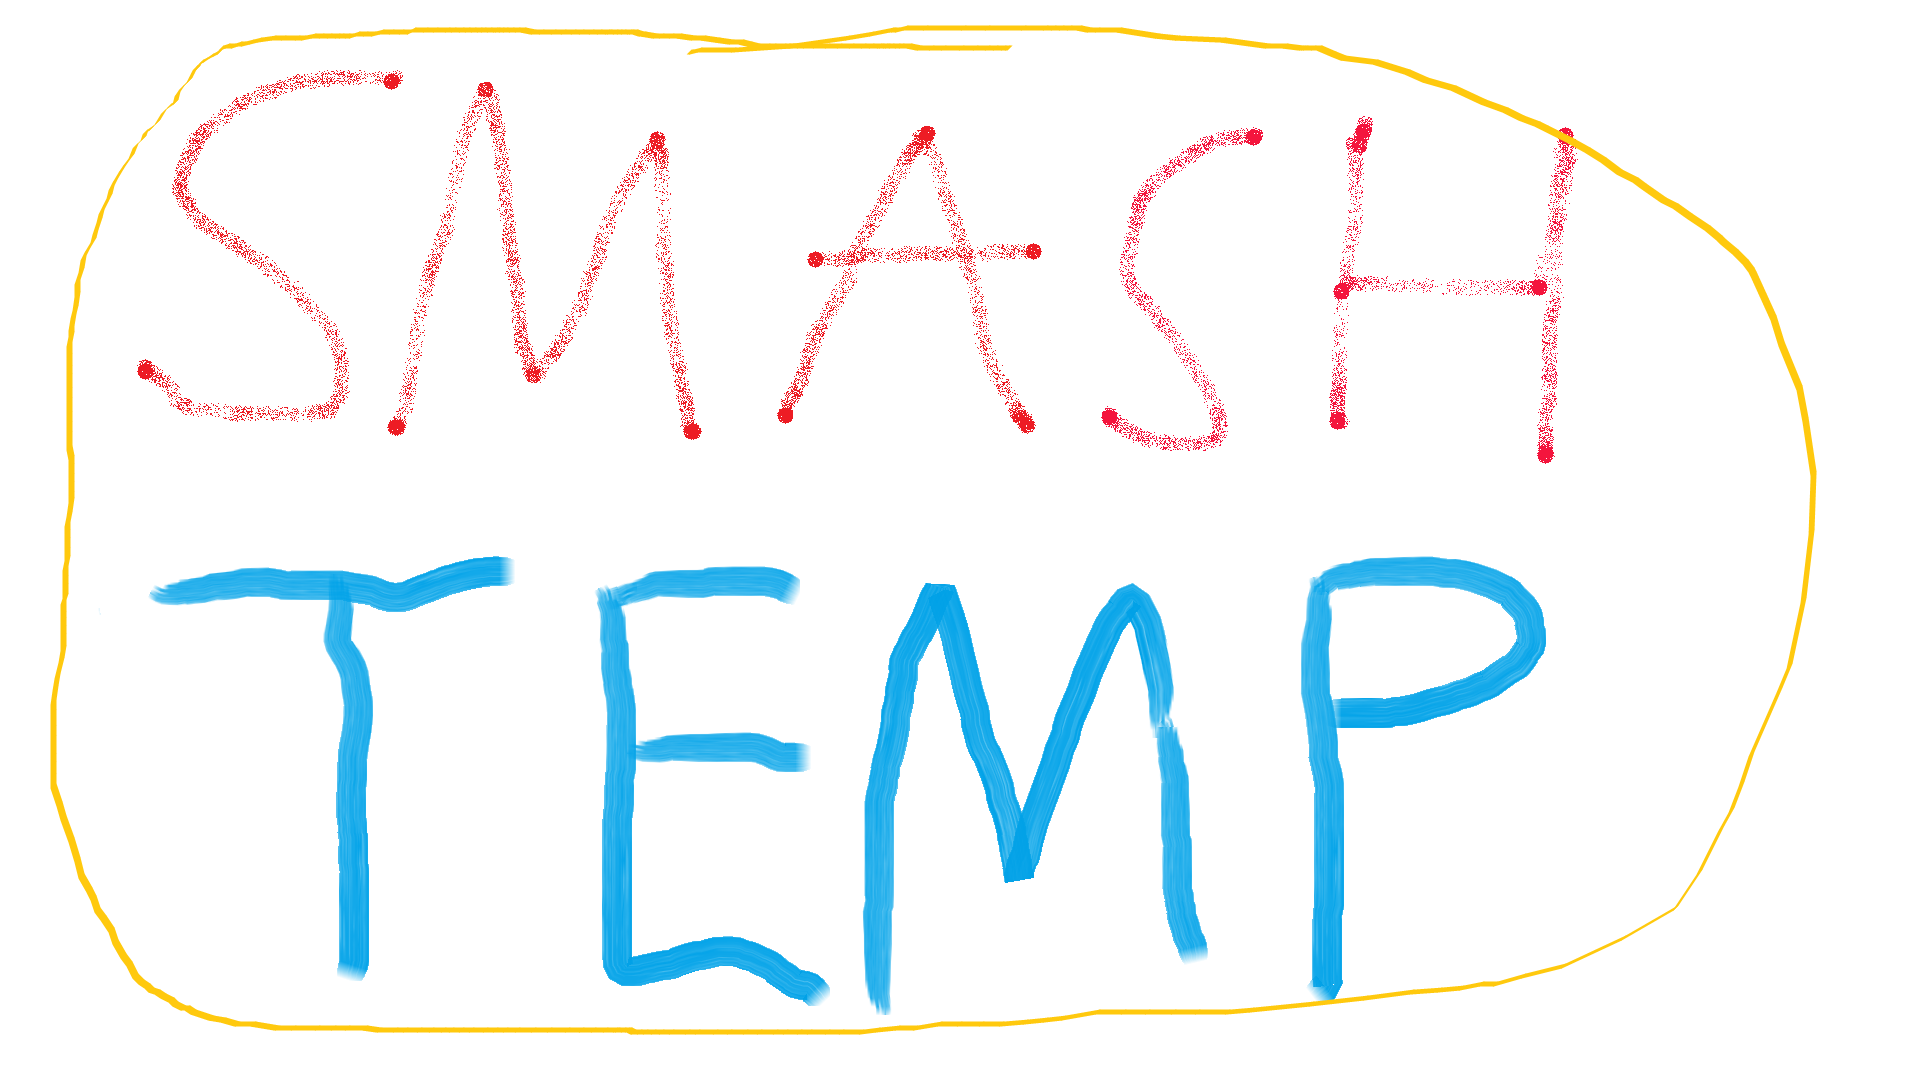 SMASH
TEMP